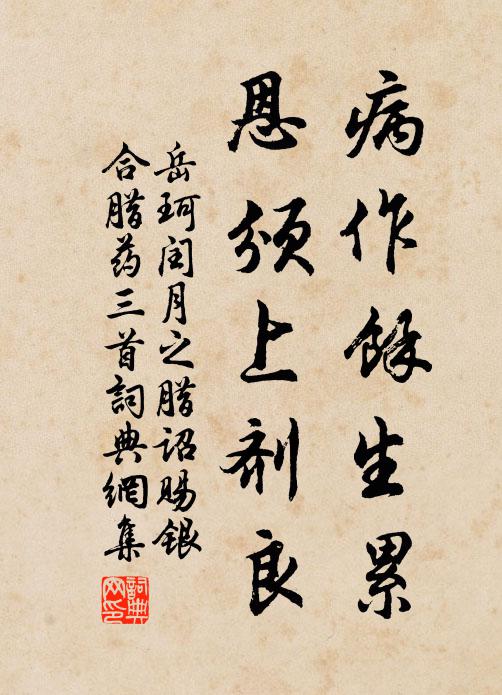 病作餘生累
恩頒上劑良
岳珂閏月之腊詔賜銀
合腊药三首詞典網集